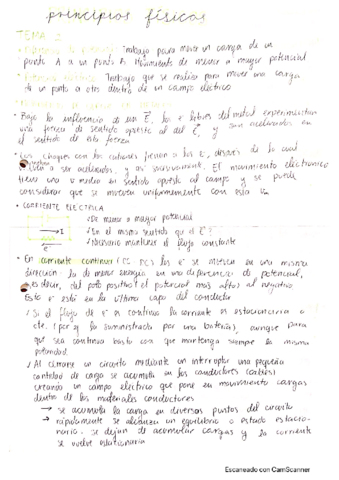 principios físicos
TEMA 2
Trabajo para mover un carga de un
punto A a un punto B. Movimiento de menor a mayor potencial
Trabajo que se realiza para mover una carga
de un punto a otro dentro de un campo electrico
Bajo la influencia de un E, los e libres del metal experimentan
una fuerza de sentido opuesto al del E, y son acelerados en
el sentido de esta fuerza
Los choques con los cationes frenan a los e, después de lo cual
vuelven a ser acelerados, y así sucesivamente. El movimiento electronico
tiene una v media en sentido opuesto al campo y se puede
considerar que se mueven uniformemente con esta
CORRIENTE ELECTRICA
De menor a mayor potencial
En el mismo sentido que el E?
Necesario mantener el flujo constante
En corriente continua (CC DC) los e se mueven en una misma
dirección la de menor energía en una diferencia de potencial,
es decir, del polo positivo (el potencial mas alto) al negativo
Este está en la última capa del conductor
Si el flujo de e es continuo la corriente es estacionaria o
cte. (por ej la suministrada por una batería), aunque para
que sea continua basta con que mantenga siempre la misma
polaridad
Al cerrarse un circuito mediante un interruptor una pequeña
cantidad de carga se acumula en los conductores (cables)
creando un campo electrico que pone en movimiento cargas
dentro de los materiales conductores
→ se acumula la carga en diversos puntos del circuito
→ rápidamente se alcanza un equilibrio o estado estacio-
nario. se dejan de acumular cargas y la corriente
se vuelve estacionaria
Escaneado con CamScanner